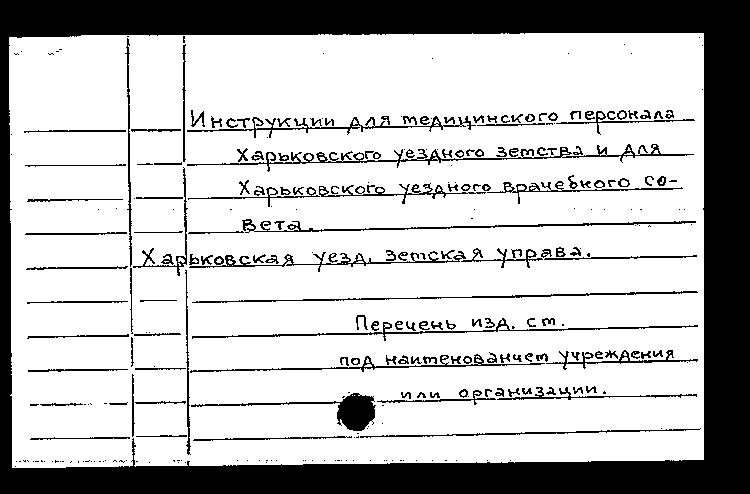 Инструкции для медицинского персонала
Харьковского уездного земства и для
Харьковского уездного врачебного со-
вета.
Харьковская уезд. земская управа.
Перечень изд. см.
под наименованием учреждения
или организации.